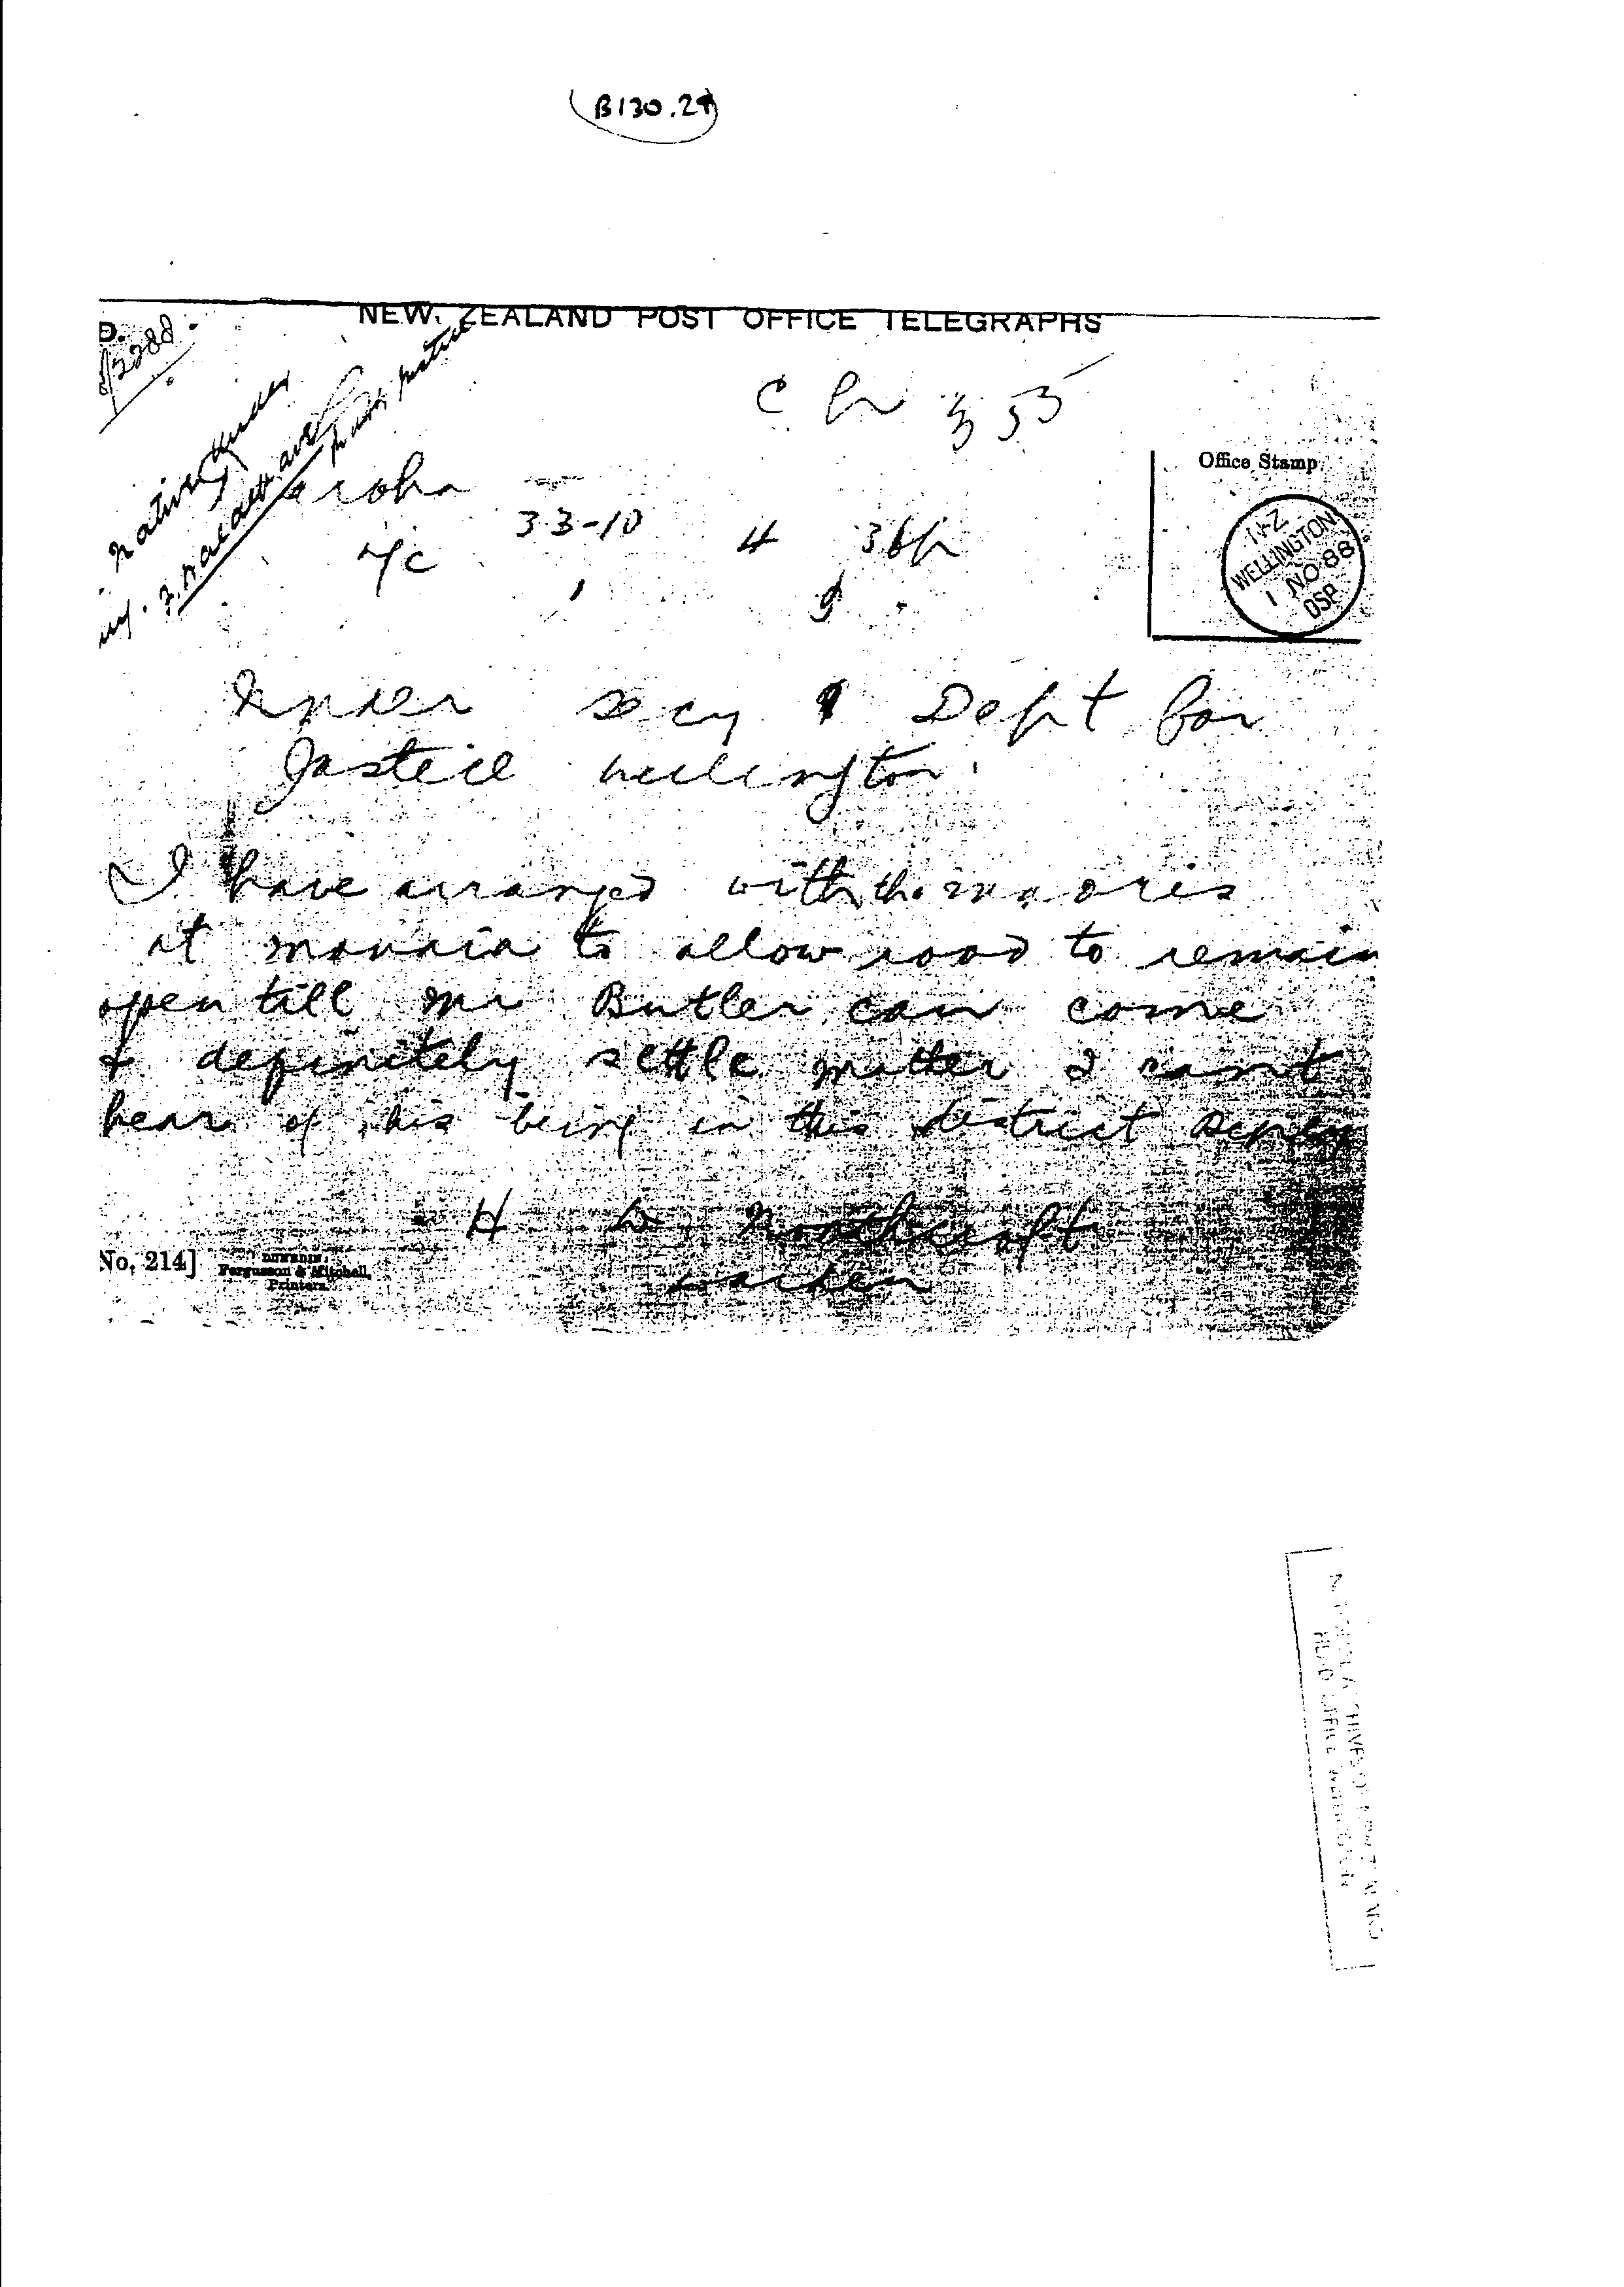 B130.29
NEW ZEALAND POST OFFICE TELEGRAPHS
D.
/2288
Native
Office Stamp
N.Z
WELLINGTON
1 NO 88
DSP
Aroha
33-10 4 36p
Under Secy Dept for
Justice Wellington
I have arranged with the maoris
at manaia to allow road to remain
open till mr Butler can come
& definitely settle matter I cant
hear of his being in this district
H W Northcroft
warden
No. 214]
DUNEDIN:
Fergusson & Mitchell,
Printers